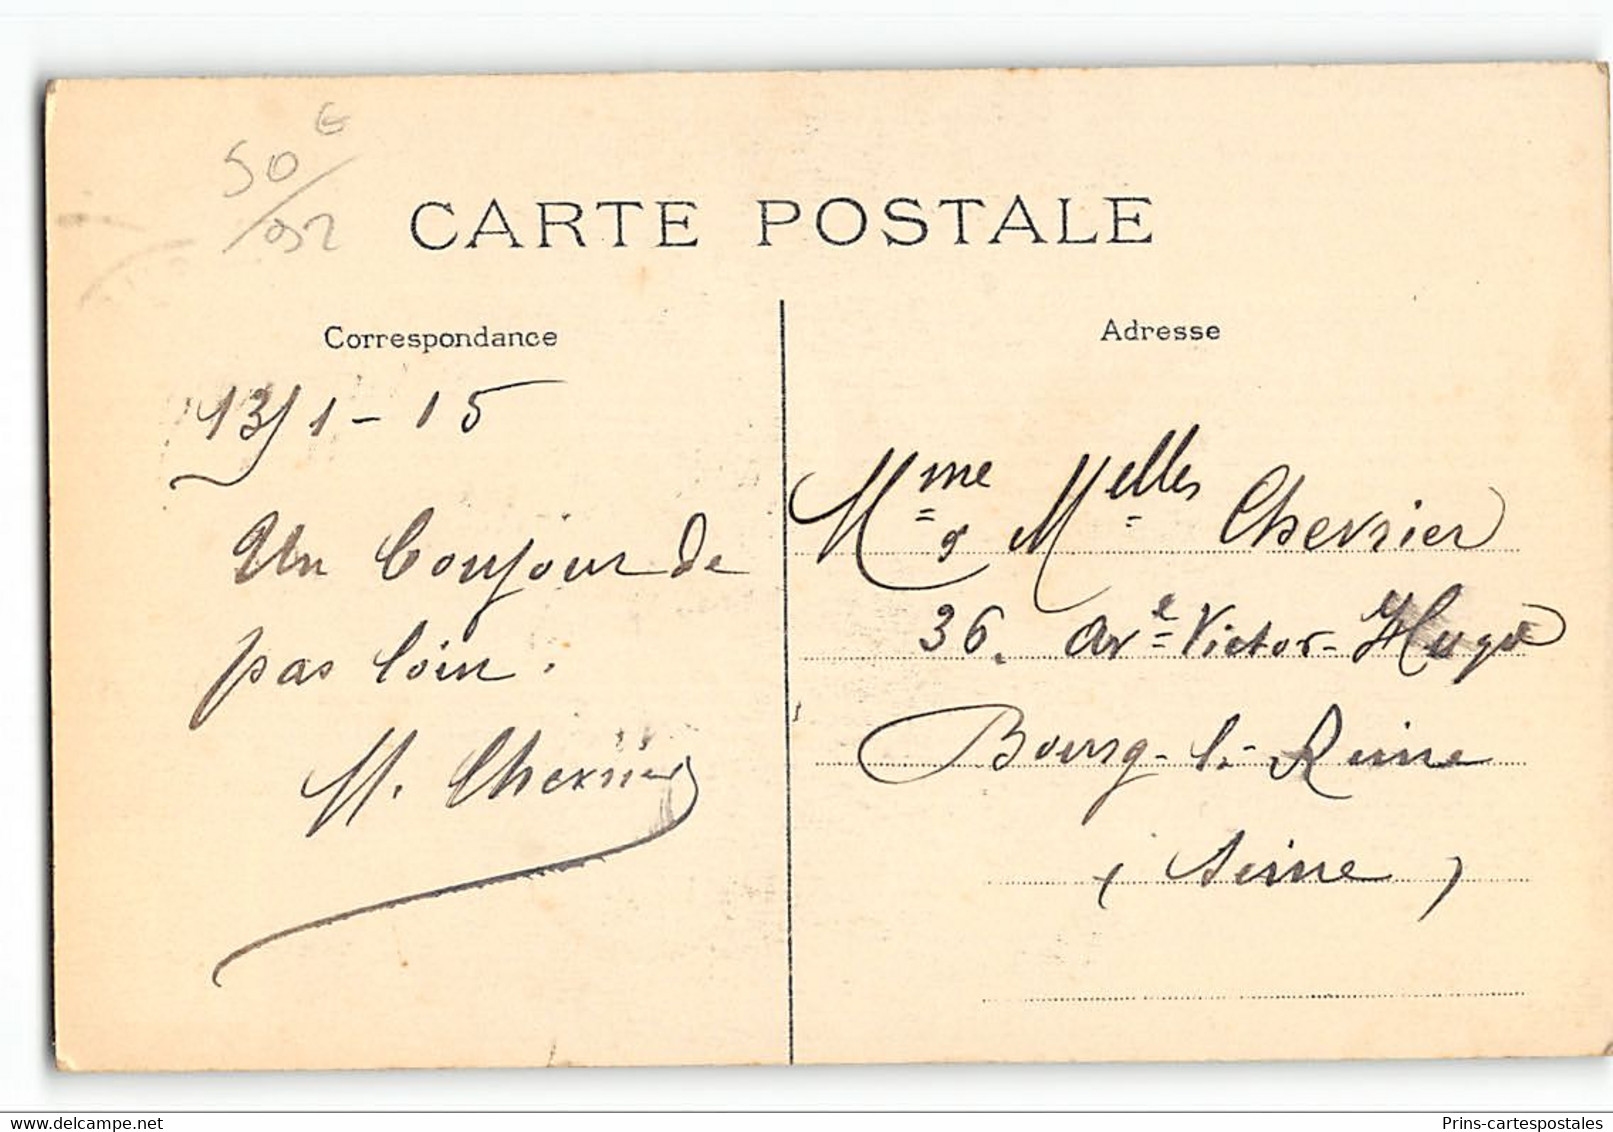 50 €
92
CARTE POSTALE
Correspondance
13/1-15
Un bonjour de
pas loin.
M. Chevrier
Adresse
Mme & Melles Chevrier
36. Ave Victor-Hugo
Bourg-la-Reine
(Seine)
www.delcampe.net
Prins-cartespostales